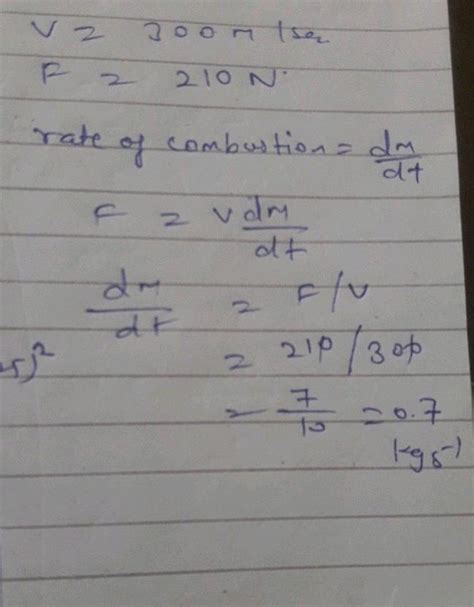 V = 300 m/sec
F = 210 N.
rate of combustion = dm/dt
F = v dm/dt
dm/dt = F/V
= 210/300
= 7/10 = 0.7
kg s⁻¹